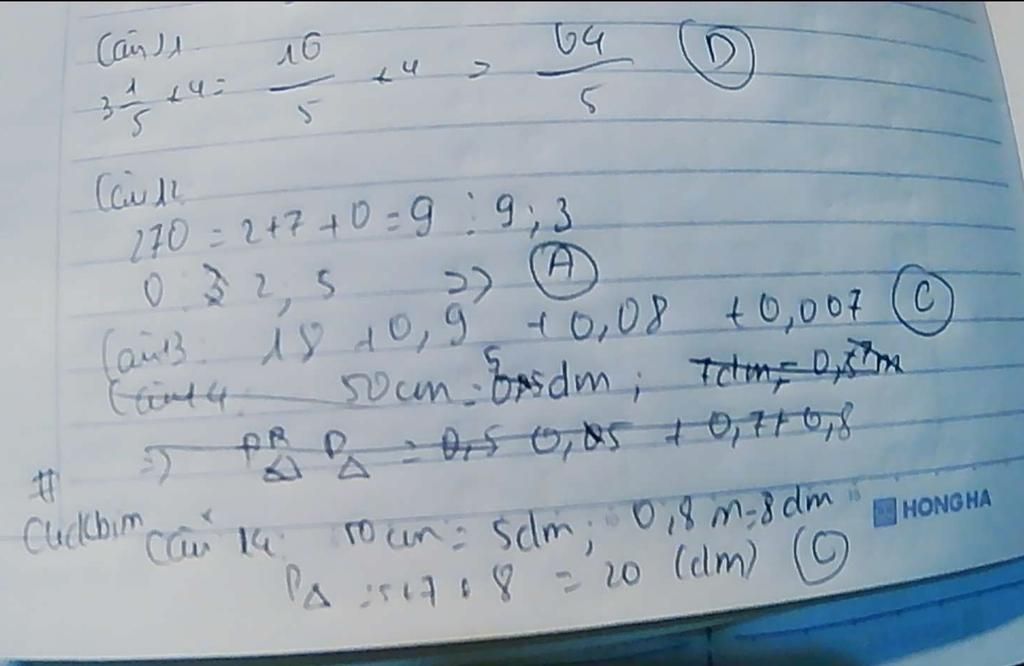 Câu 11
3 1/5 + 4 = 16/5 + 4 = 64/5 D
Câu 12
270 = 2+7+0 = 9 : 9; 3
0 : 2, 5 => A
Câu 13: 18 + 0,9 + 0,08 + 0,007 C
Câu 14 50cm = 5dm; 7dm = 0,7m
=> P△ = 0,5 + 0,7 + 0,8
#
Cuckbim Câu 14: 50cm = 5dm; 0,8m = 8dm
HONG HA
P△ = 5+7+8 = 20 (dm) C